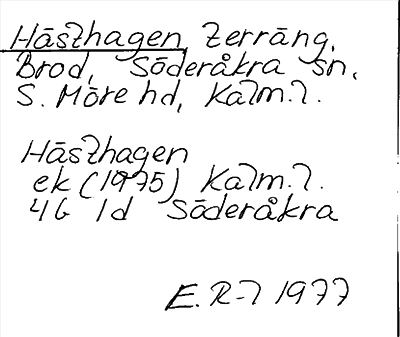 Hästhagen, Terräng,
Brod, Söderåkra sn,
S. Möre hd, Kalm. l.
Hästhagen
ek (1975) Kalm. l.
4G 1d Söderåkra
E. R-l 1977